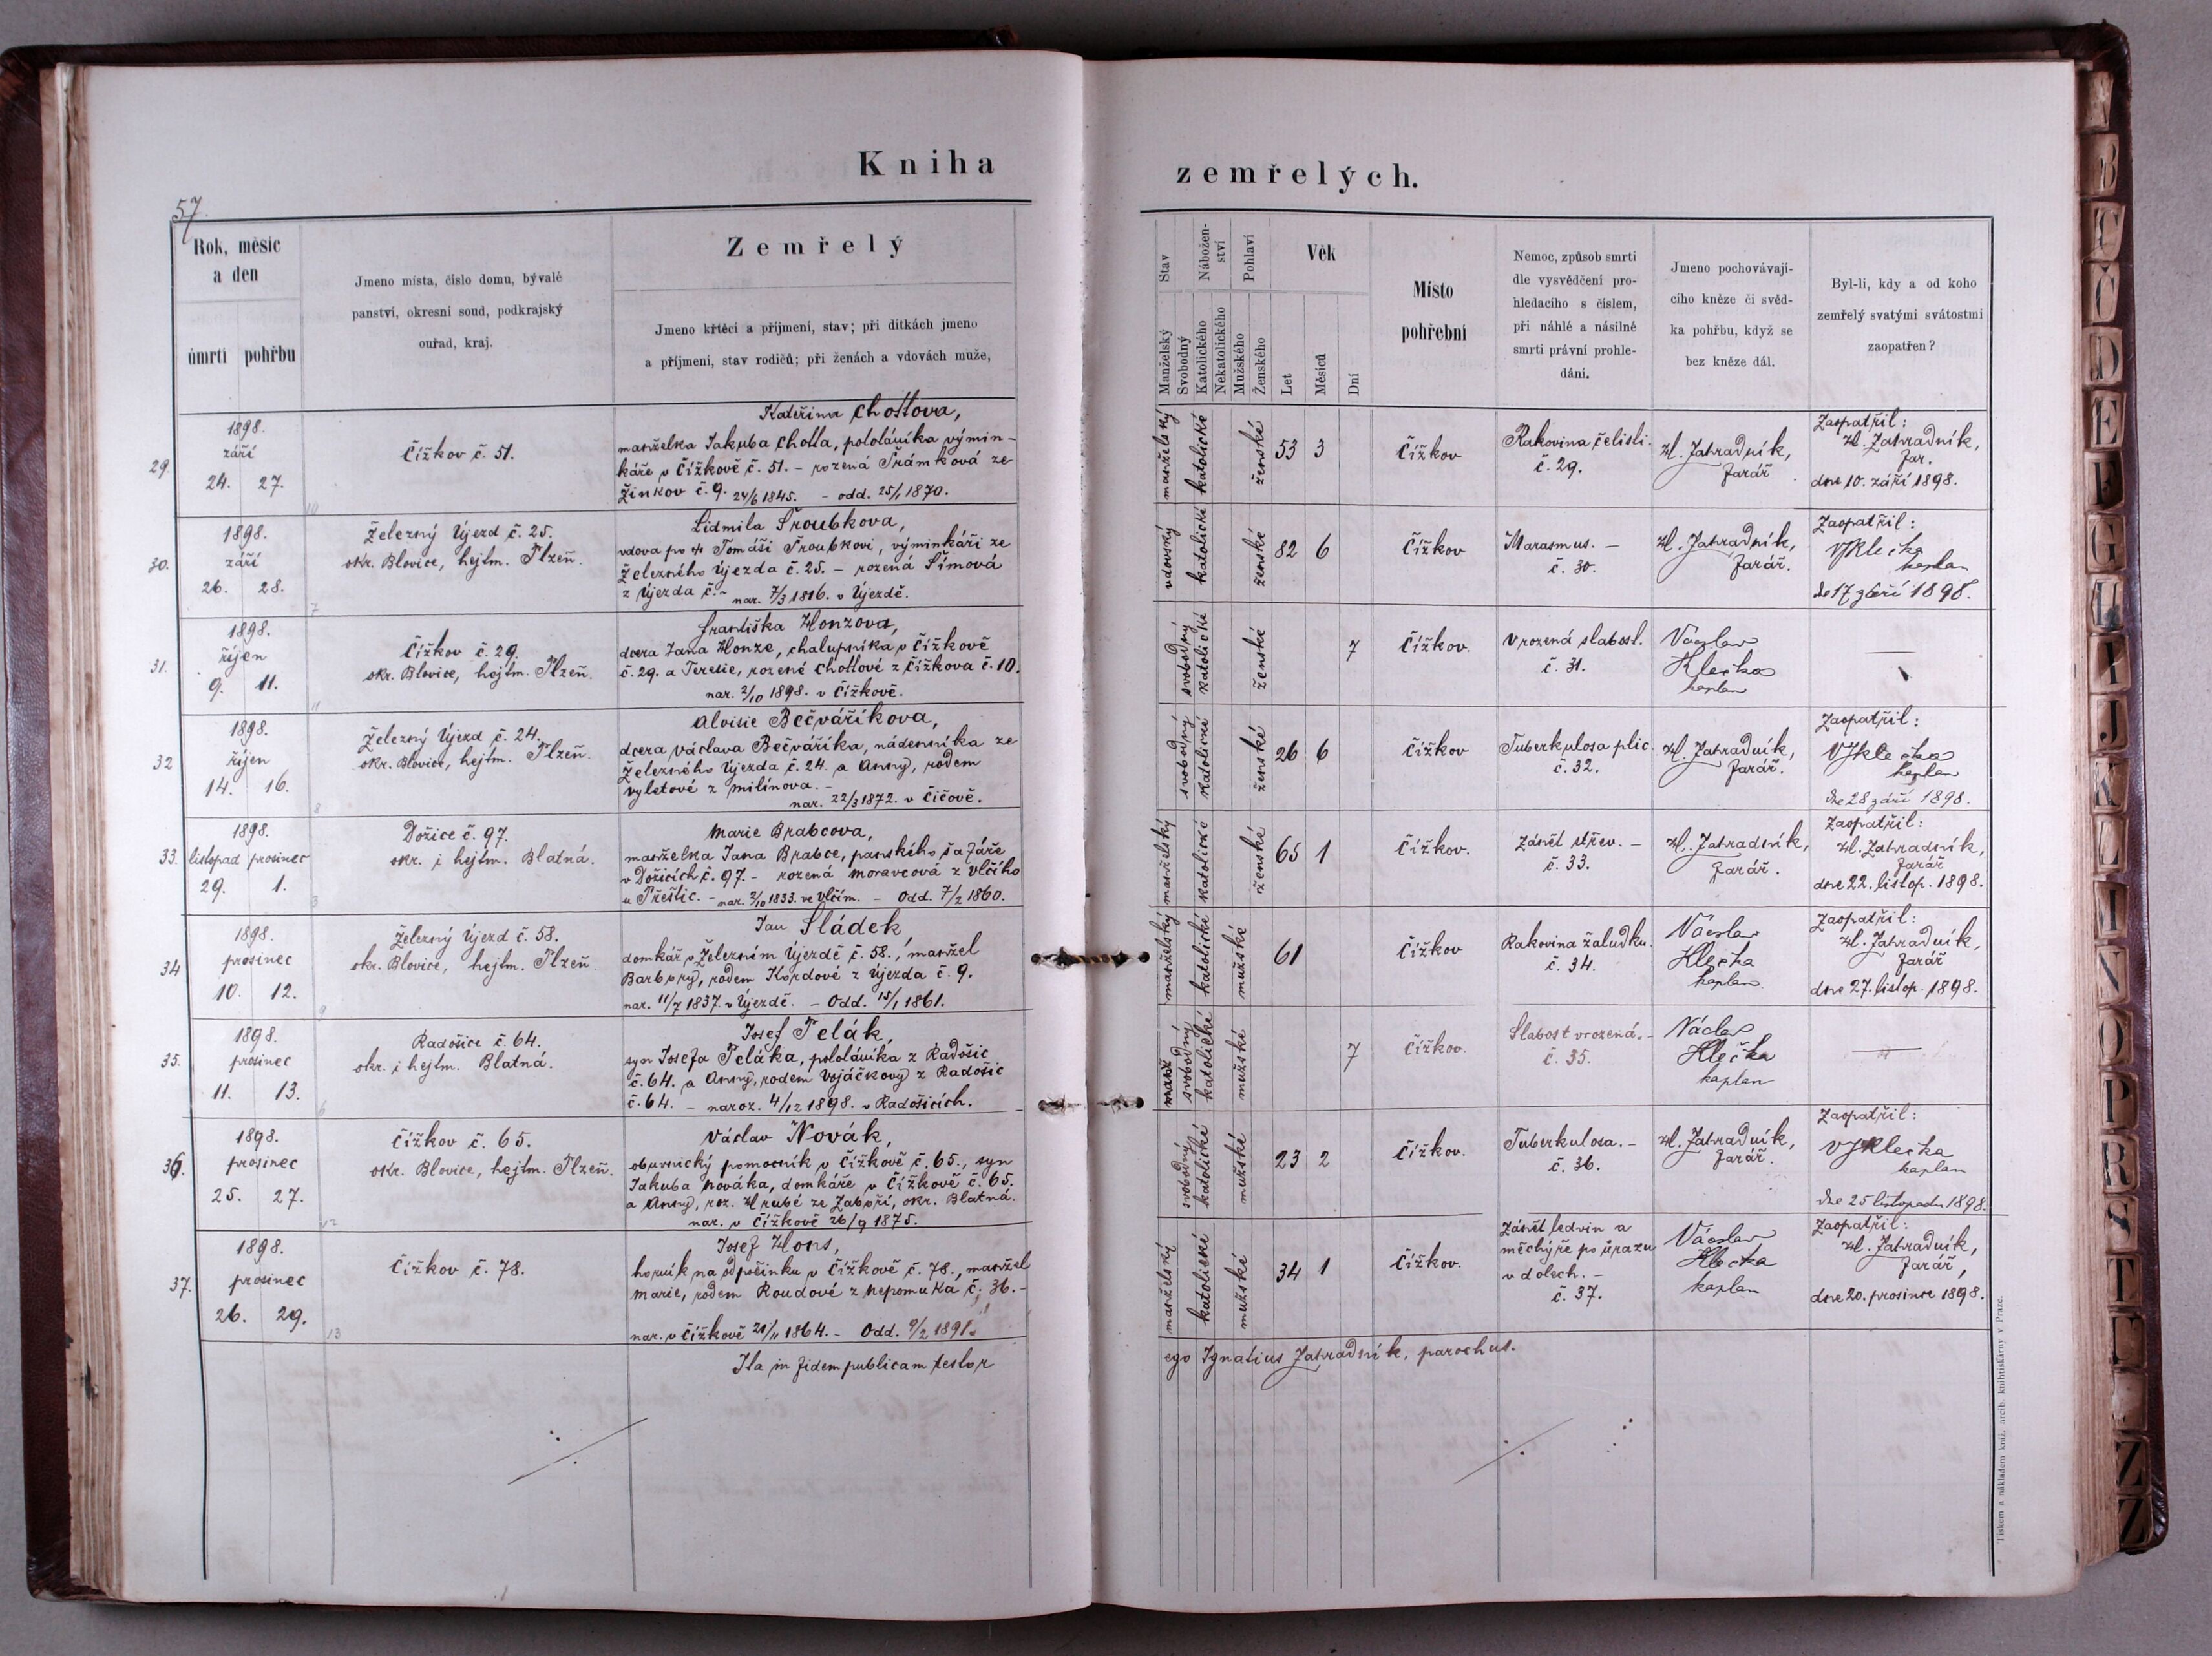 Kniha
zemřelých.
57.
Rok, měsíc
a den
úmrtí
pohřbu
Jmeno místa, číslo domu, bývalé
panství, okresní soud, podkrajský
ouřad, kraj.
Zemřelý
Jmeno křtěcí a příjmení, stav; při dítkách jmeno
a příjmení, stav rodičů; při ženách a vdovách muže,
Stav
Manželský
Svobodný
Nábožen-
ství
Katolického
Nekatolického
Pohlaví
Mužského
Ženského
Věk
Let
Měsíců
Dní
Místo
pohřební
Nemoc, způsob smrti
dle vysvědčení pro-
hledacího s číslem,
při náhlé a násilné
smrti právní prohle-
dání.
Jmeno pochovávají-
cího kněze či svěd-
ka pohřbu, když se
bez kněze dál.
Byl-li, kdy a od koho
zemřelý svatými svátostmi
zaopatřen?
29.
1898.
září
24. 27.
10
Čížkov č. 51.
Kateřina Chottova,
manželka Jakuba Chotta, pololáníka výmin-
káře v Čížkově č. 51. - rozená Šrámková ze
Žinkov č. 9. 24/6 1845. - odd. 25/1 1870.
manželský
katolické
ženské
53 3
Čížkov
Rakovina čelisti.
č. 29.
Ign. Zahradník,
farář
Zaopatřil:
Ign. Zahradník,
far.
dne 10. září 1898.
30.
1898.
září
26. 28.
7
Železný Újezd č. 25.
okr. Blovice, hejtm. Plzeň.
Lidmila Šroubkova,
vdova po † Tomáši Šroubkovi, výminkáři ze
Železného Újezda č. 25. - rozená Šímová
z Újezda č. - nar. 7/3 1816. v Újezdě.
vdovský
katolické
ženské
82 6
Čížkov
Marasmus. -
č. 30.
Ign. Zahradník,
farář.
Zaopatřil:
VKlečka
kaplan
de 17 září 1898.
31.
1898.
říjen
9. 11.
11
Čížkov č. 29.
okr. Blovice, hejtm. Plzeň.
Františka Honzova,
dcera Jana Honze, chalupníka v Čížkově
č. 29. a Terezie, rozené Chottové z Čížkova č. 10.
nar. 2/10 1898. v Čížkově.
svobodný
katolické
ženské
7
Čížkov.
Vrozená slabost.
č. 31.
Václav
Klečka
kaplan
32
1898.
říjen
14. 16.
8
Železný Újezd č. 24.
okr. Blovice, hejtm. Plzeň.
Aloisie Bečváříkova,
dcera Václava Bečváříka, nádenníka ze
Železného Újezda č. 24. a Anny, rodem
Vyletové z Milínova. -
nar. 22/3 1872. v Čičově.
svobodný
katolické
ženské
26 6
Čížkov
Tuberkulosa plic.
č. 32.
Ign. Zahradník,
farář.
Zaopatřil:
VKlečka
kaplan
dne 28 září 1898.
33.
1898.
listopad prosinec
29. 1.
3
Dožice č. 97.
okr. i hejtm. Blatná.
Marie Brabcova,
manželka Jana Brabce, panského šafáře
v Dožicích č. 97. - rozená Moravcová z Vlčího
u Přeštic. - nar. 2/10 1833. ve Vlčím. - Odd. 7/2 1860.
manželský
katolické
ženské
65 1
Čížkov.
Zánět střev. -
č. 33.
Ign. Zahradník,
farář.
Zaopatřil:
Ign. Zahradník,
farář
dne 22. listop. 1898.
34
1898.
prosinec
10. 12.
9
Železný Újezd č. 58.
okr. Blovice, hejtm. Plzeň.
Jan Sládek,
domkář v Železném Újezdě č. 58., manžel
Barbory, rodem Kordové z Újezda č. 9.
nar. 11/7 1837. v Újezdě. - Odd. 15/1 1861.
manželský
katolické
mužské
61
Čížkov
Rakovina žaludku.
č. 34.
Václav
Klečka
kaplan
Zaopatřil:
Ign. Zahradník,
farář
dne 27. listop. 1898.
35.
1898.
prosinec
11. 13.
6
Radošice č. 64.
okr. i hejtm. Blatná.
Josef Pelák,
syn Josefa Peláka, pololáníka z Radošic
č. 64. a Anny, rodem Vojáčkovy z Radošic
č. 64. - naroz. 4/12 1898. v Radošicích.
manž
svobodný
katolické
mužské
7
Čížkov.
Slabost vrozená. -
č. 35.
Václav
Klečka
kaplan
36.
1898.
prosinec
25. 27.
12
Čížkov č. 65.
okr. Blovice, hejtm. Plzeň.
Václav Novák,
obuvnický pomocník v Čížkově č. 65., syn
Jakuba Nováka, domkáře v Čížkově č. 65.
a Anny, roz. Hrubé ze Záboří, okr. Blatná.
nar. v Čížkově 26/9 1875.
svobodný
katolické
mužské
23 2
Čížkov.
Tuberkulosa. -
č. 36.
Ign. Zahradník,
farář.
Zaopatřil:
VKlečka
kaplan
dne 25 listopadu 1898.
37.
1898.
prosinec
26. 29.
13
Čížkov č. 78.
Josef Hons,
horník na odpočinku v Čížkově č. 78., manžel
Marie, rodem Roudové z Nepomuka č. 36. -
nar. v Čížkově 21/11 1864. - Odd. 9/2 1891.
manželský
katolické
mužské
34 1
Čížkov.
Zánět ledvin a
měchýře po úrazu
v dolech. -
č. 37.
Václav
Klečka
kaplan
Zaopatřil:
Ign. Zahradník,
farář,
dne 20. prosince 1898.
Ita in fidem publicam testor
ego Ignatius Zahradník, parochus.
Tiskem a nákladem kníž. arcib. knihtiskárny v Praze.
B
C
Č
D
E
F
G
H
I
J
K
L
M
N
O
P
R
S
T
U
Z
Ž